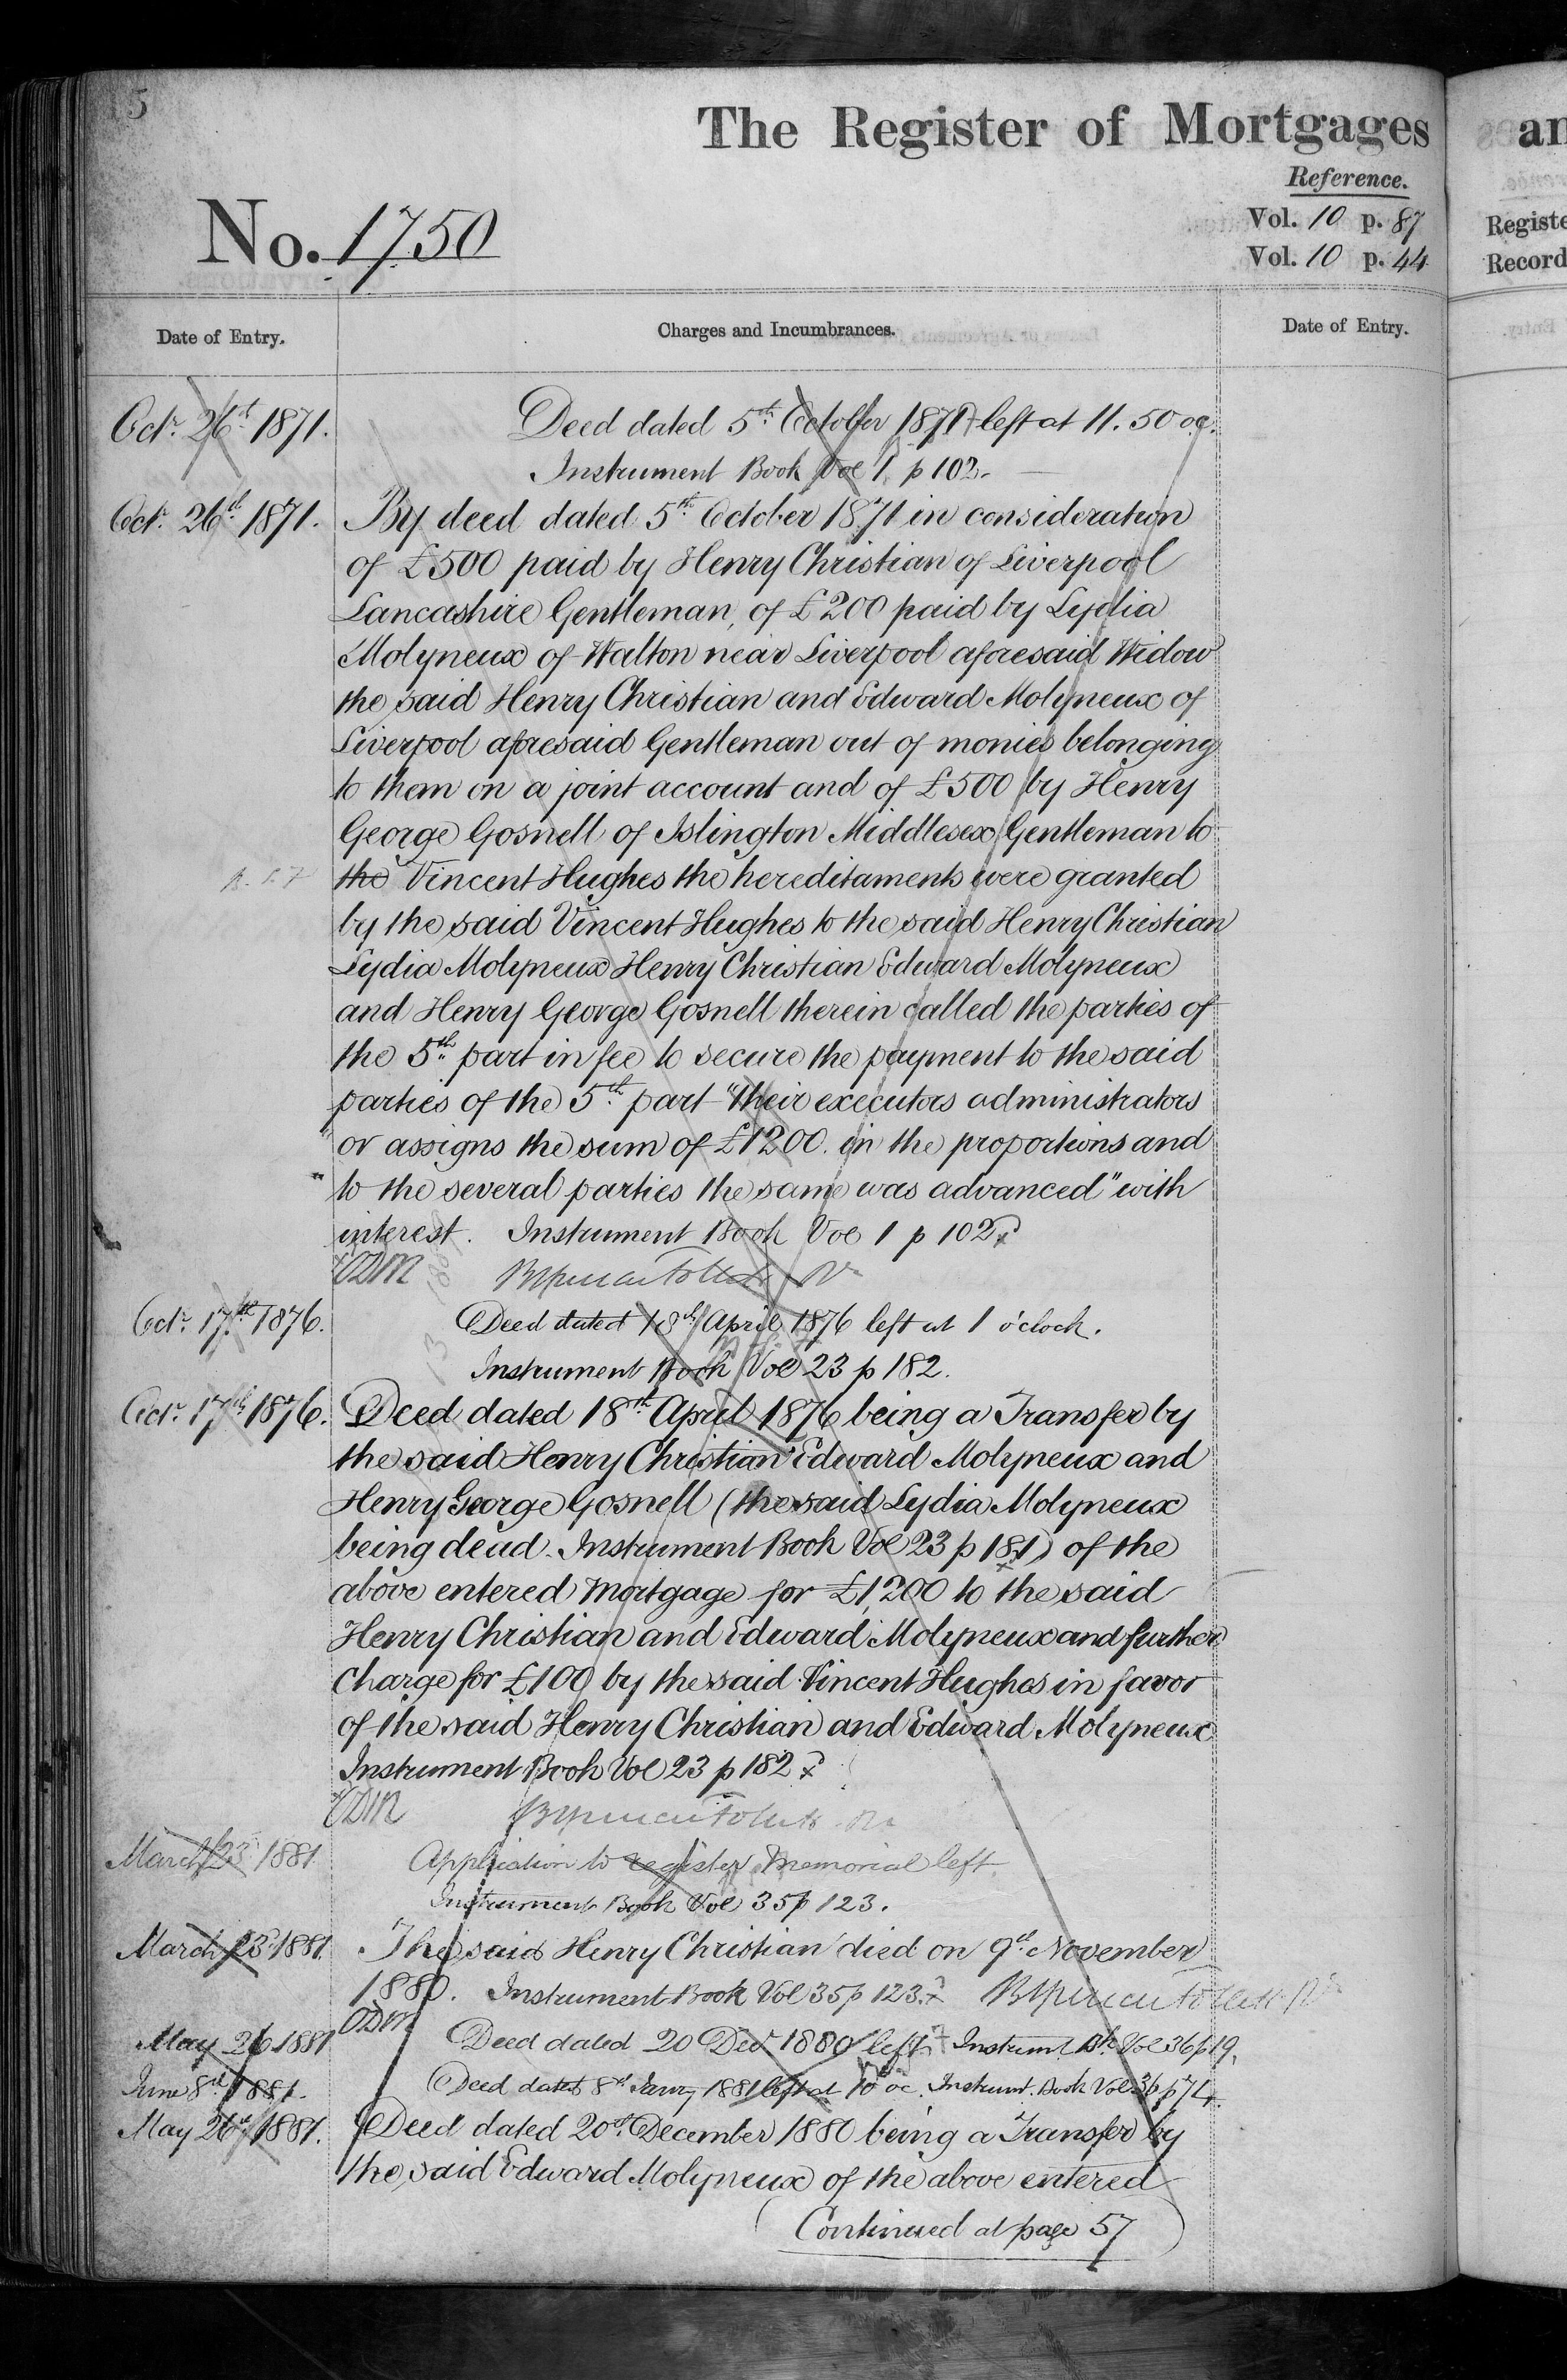 15
The Register of Mortgages
an
Reference.
No. 1750
Vol. 10 p. 87
Vol. 10 p. 44
Registe
Record
Date of Entry.
Charges and Incumbrances.
Date of Entry.
Octr. 26th 1871. Deed dated 5th October 1871 left at 11.50 oc.
Instrument Book Vol 1 p 102.
Octr. 26th 1871. By deed dated 5th October 1871 in consideration
of £500 paid by Henry Christian of Liverpool
Lancashire Gentleman, of £200 paid by Lydia
Molyneux of Walton near Liverpool aforesaid Widow
the said Henry Christian and Edward Molyneux of
Liverpool aforesaid Gentleman out of monies belonging
to them on a joint account and of £500 by Henry
George Gosnell of Islington Middlesex Gentleman to
the Vincent Hughes the hereditaments were granted
by the said Vincent Hughes to the said Henry Christian
Lydia Molyneux Henry Christian Edward Molyneux
and Henry George Gosnell therein called the parties of
the 5th part in fee to secure the payment to the said
parties of the 5th part "their executors administrators
" or assigns the sum of £1200. in the proportions and
" to the several parties the same was advanced" with
interest. Instrument Book Vol 1 p 102
ODM
Octr. 17th 1876. Deed dated 18th April 1876 left at 1 o'clock.
Instrument Book Vol 23 p 182.
Octr. 17th 1876. Deed dated 18th April 1876 being a Transfer by
the said Henry Christian Edward Molyneux and
Henry George Gosnell (the said Lydia Molyneux
being dead. Instrument Book Vol 23 p 181) of the
above entered mortgage for £1,200 to the said
Henry Christian and Edward Molyneux and further
Charge for £100 by the said Vincent Hughes in favor
of the said Henry Christian and Edward Molyneux
Instrument Book Vol 23 p 182
ODM
March 23 1881 Application to register Memorial left.
Instrument Book Vol 35 p 123.
March 23 1881 The said Henry Christian died on 9th November
1880. Instrument Book Vol 35 p 123.
ODM
May 26 1881 Deed dated 20 Decr 1880 left Instrumt Bk Vol 36 p 19.
June 8th 1881. Deed dated 8th Jany 1881 left at 10 oc. Instrumt. Book Vol 36 p 74.
May 26th 1881. Deed dated 20th December 1880 being a Transfer by
the said Edward Molyneux of the above entered
(Continued at page 57)